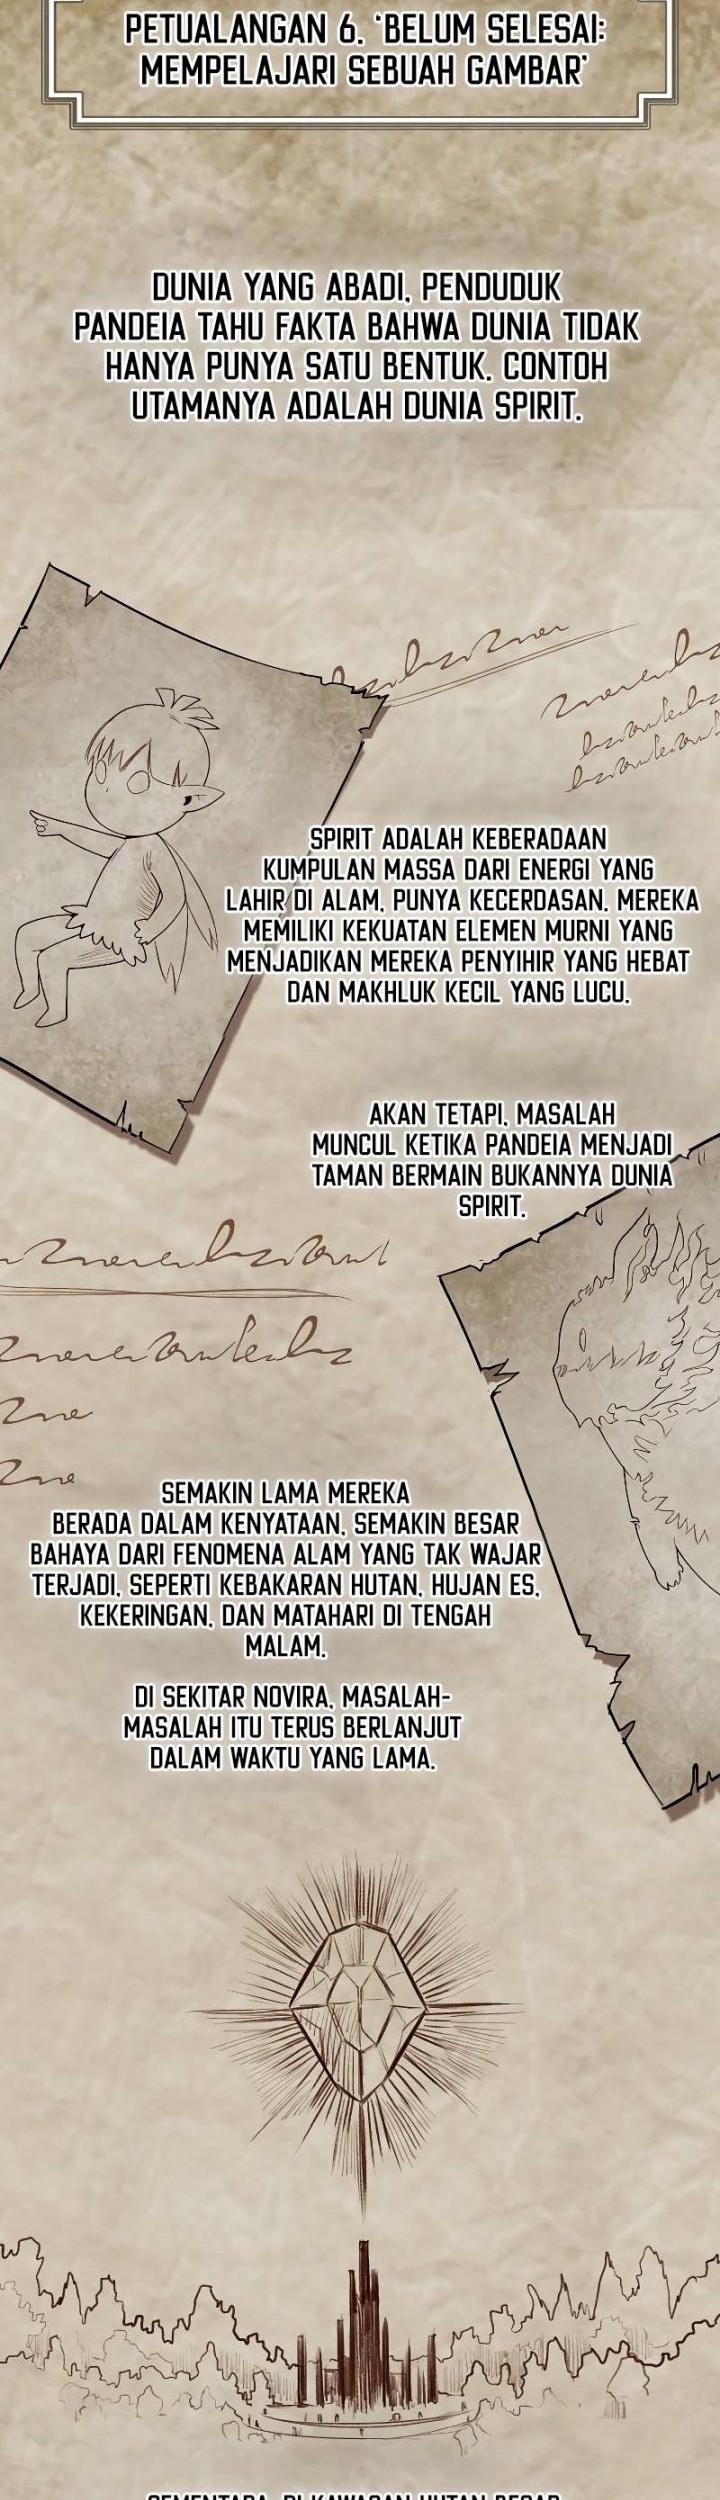 PETUALANGAN 6. 'BELUM SELESAI:
MEMPELAJARI SEBUAH GAMBAR'
DUNIA YANG ABADI, PENDUDUK
PANDEIA TAHU FAKTA BAHWA DUNIA TIDAK
HANYA PUNYA SATU BENTUK. CONTOH
UTAMANYA ADALAH DUNIA SPIRIT.
SPIRIT ADALAH KEBERADAAN
KUMPULAN MASSA DARI ENERGI YANG
LAHIR DI ALAM, PUNYA KECERDASAN. MEREKA
MEMILIKI KEKUATAN ELEMEN MURNI YANG
MENJADIKAN MEREKA PENYIHIR YANG HEBAT
DAN MAKHLUK KECIL YANG LUCU.
AKAN TETAPI, MASALAH
MUNCUL KETIKA PANDEIA MENJADI
TAMAN BERMAIN BUKANNYA DUNIA
SPIRIT.
SEMAKIN LAMA MEREKA
BERADA DALAM KENYATAAN, SEMAKIN BESAR
BAHAYA DARI FENOMENA ALAM YANG TAK WAJAR
TERJADI, SEPERTI KEBAKARAN HUTAN, HUJAN ES,
KEKERINGAN, DAN MATAHARI DI TENGAH
MALAM.
DI SEKITAR NOVIRA, MASALAH-
MASALAH ITU TERUS BERLANJUT
DALAM WAKTU YANG LAMA.
SEMENTARA, DI KAWASAN HUTAN BESAR